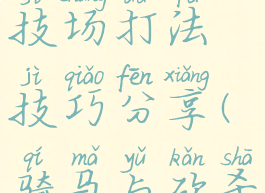 技场打法
jì qiǎo fēn xiǎng
技巧分享(
qí mǎ yǔ kǎn shā
骑马与砍杀